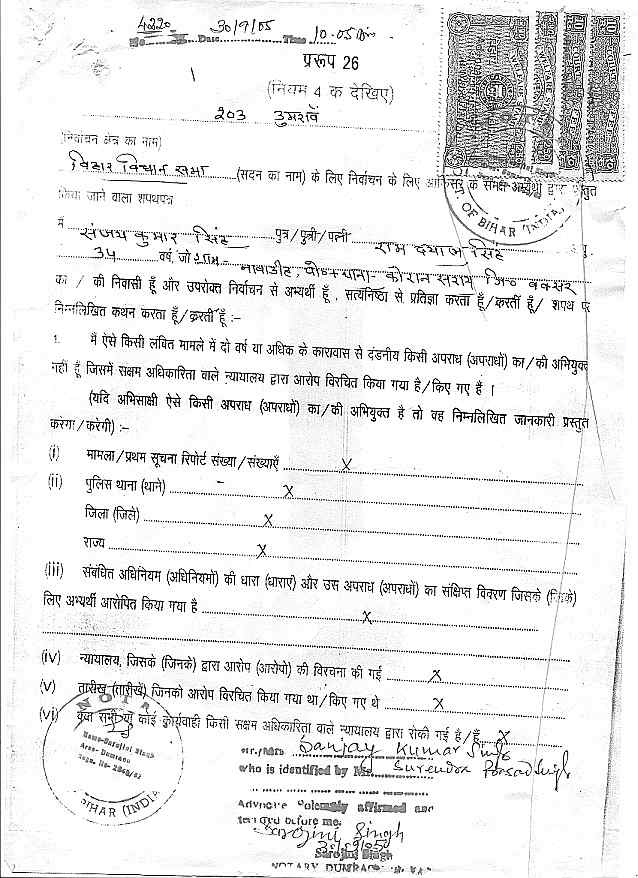 4220 30/9/05 10.05
No. Date Time
प्ररूप 26
(नियम 4 क देखिए)
203 डुमराँव
(निर्वाचन क्षेत्र का नाम)
बिहार विधान सभा (सदन का नाम) के लिए निर्वाचन के लिए के समक्ष अभ्यर्थी द्वारा प्रस्तुत
किया जाने वाला शपथपत्र
OF BIHAR (INDIA)
मैं संजय कुमार सिंह पुत्र/पुत्री/पत्नी राम दयाल सिंह
वर्ष, जो ग्राम- थाना- कोरान सराय जि० बक्सर
का / की निवासी हूँ और उपरोक्त निर्वाचन से अभ्यर्थी हूँ , सत्यनिष्ठा से प्रतिज्ञा करता हूँ/करतीं हूँ/ शपथ पर
निम्नलिखित कथन करता हूँ/करती हूँ :-
1. मैं ऐसे किसी लंबित मामले में दो वर्ष या अधिक के कारावास से दंडनीय किसी अपराध (अपराधों) का/की अभियुक्त
नहीं हूँ जिसमें सक्षम अधिकारिता वाले न्यायालय द्वारा आरोप विरचित किया गया है/किए गए हैं ।
(यदि अभिसाक्षी ऐसे किसी अपराध (अपराधों) का/की अभियुक्त है तो वह निम्नलिखित जानकारी प्रस्तुत
करेगा/करेगी) :-
(i) मामला/प्रथम सूचना रिपोर्ट संख्या/संख्याएँ X
(ii) पुलिस थाना (थाने) X
जिला (जिले) X
राज्य X
(iii) संबंधित अधिनियम (अधिनियमों) की धारा (धाराएं) और उस अपराध (अपराधों) का संक्षिप्त विवरण जिसके (जिनके)
लिए अभ्यर्थी आरोपित किया गया है X
(iv) न्यायालय, जिसके (जिनके) द्वारा आरोप (आरोपो) की विरचना की गई X
(v) तारीख (तारीखें) जिनको आरोप विरचित किया गया था/किए गए थे X
(vi) क्या सभी या कोई कार्यवाही किसी सक्षम अधिकारिता वाले न्यायालय द्वारा रोकी गई है/हैं X
NOTARY
Name-Sarojini Singh
Area- Dumraon
BIHAR (INDIA)
Mr./Mrs Sanjay Kumar Singh
who is identified by Mr. Surendra Prasad Singh
Advocate Solemnly affirmed and
declared before me.
Sarojini Singh
30/9/05
Sarojini Singh
NOTARY DUMRAON